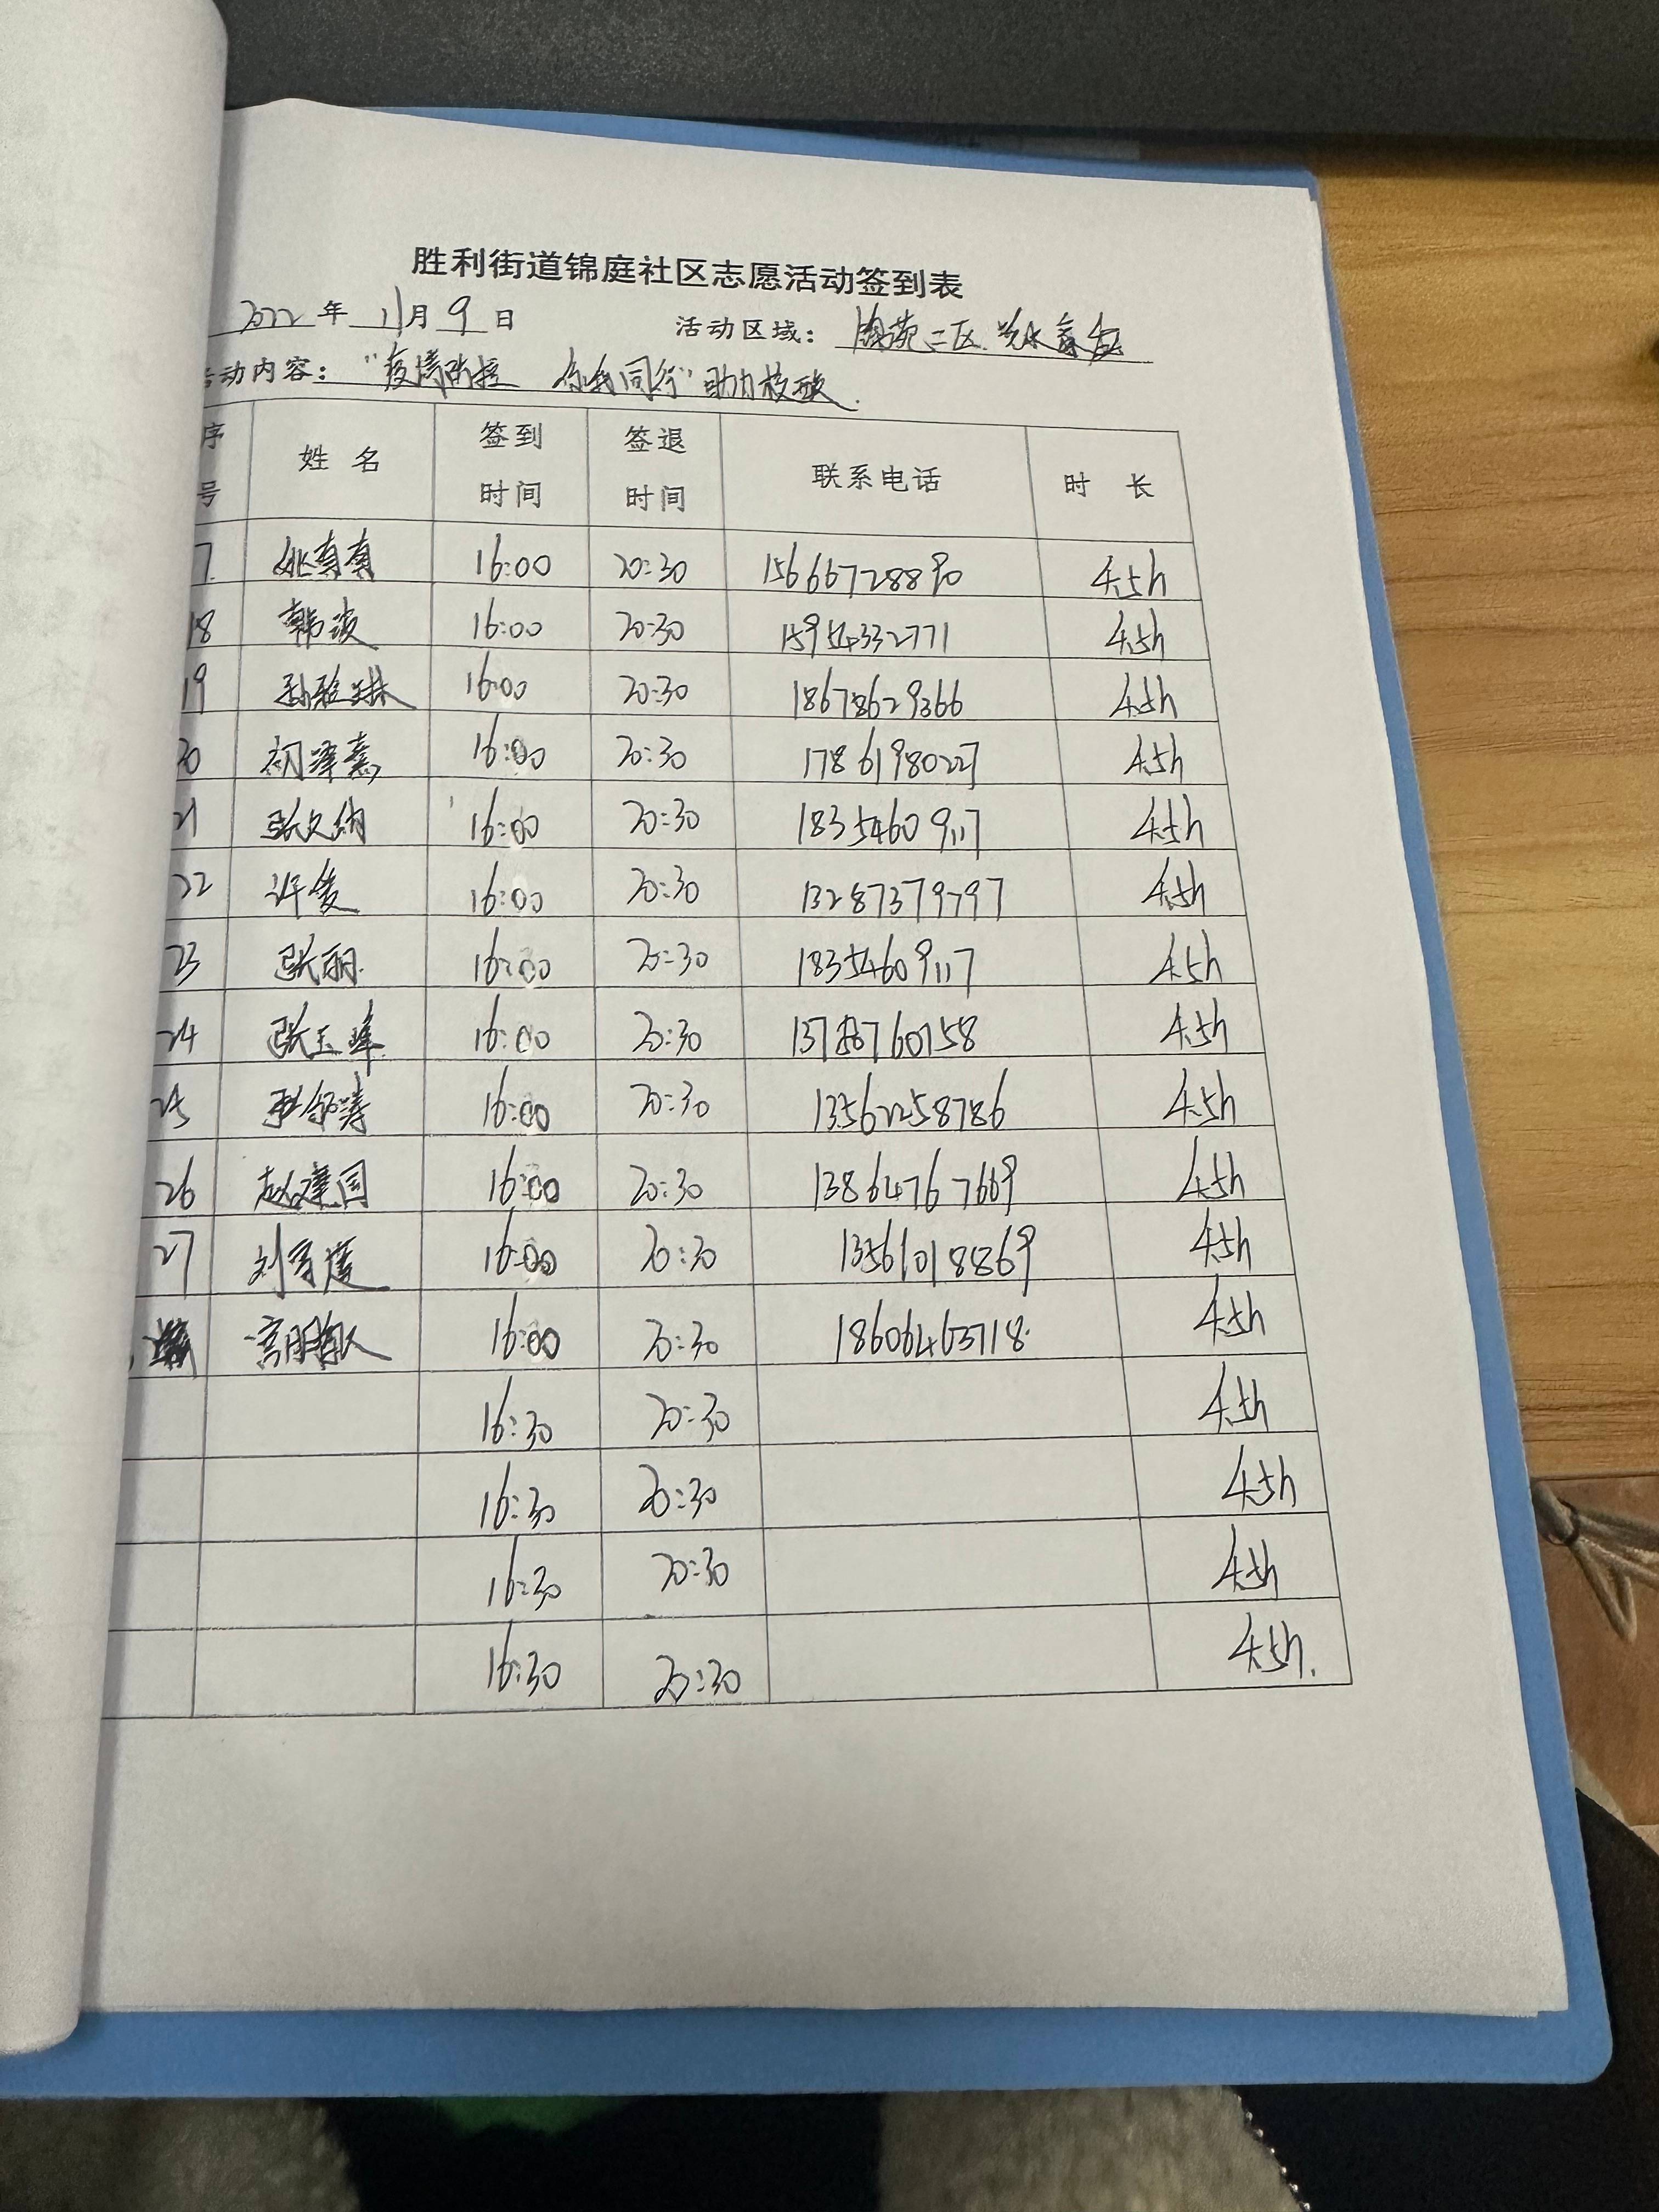 胜利街道锦庭社区志愿活动签到表
2022年 11月 9日 活动区域: 二区
动内容: "疫情防控 你我同行"助力核酸.
序号 姓名 签到时间 签退时间 联系电话 时长
7 姚真真 16:00 20:30 15666728890 4.5h
18 韩波 16:00 20:30 15954332771 4.5h
19 孙雅琳 16:00 20:30 18678629366 4.5h
20 初泽熹 16:00 20:30 17861980227 4.5h
21 张文娟 16:00 20:30 18354609117 4.5h
22 许俊 16:00 20:30 13287379797 4.5h
23 张丽 16:00 20:30 18354609117 4.5h
24 张玉峰 16:00 20:30 4.5h
25 16:00 20:30 13562258786 4.5h
26 赵建国 16:00 20:30 13864767669 4.5h
27 刘 16:00 20:30 13561018869 4.5h
16:00 20:30 18606463718 4.5h
16:30 20:30 4.5h
16:30 20:30 4.5h
16:30 20:30 4.5h
16:30 20:30 4.5h.